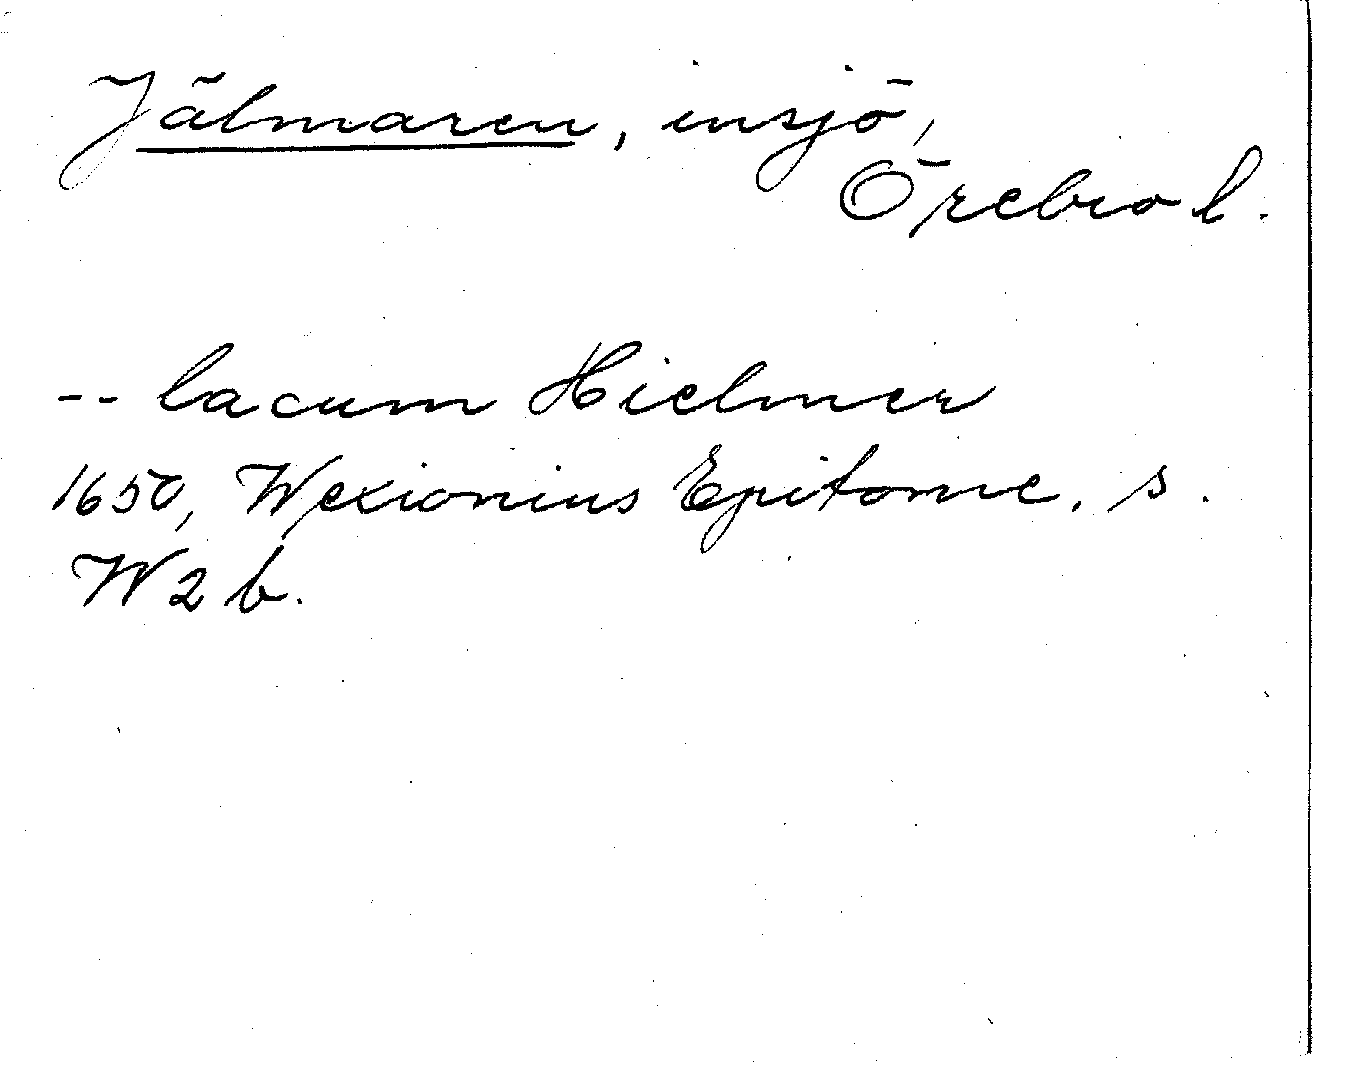 Jälmaren, insjö,
Örebro l.
-- lacum Hielmer
1650, Wexionius Epitome, s.
W 2 b.